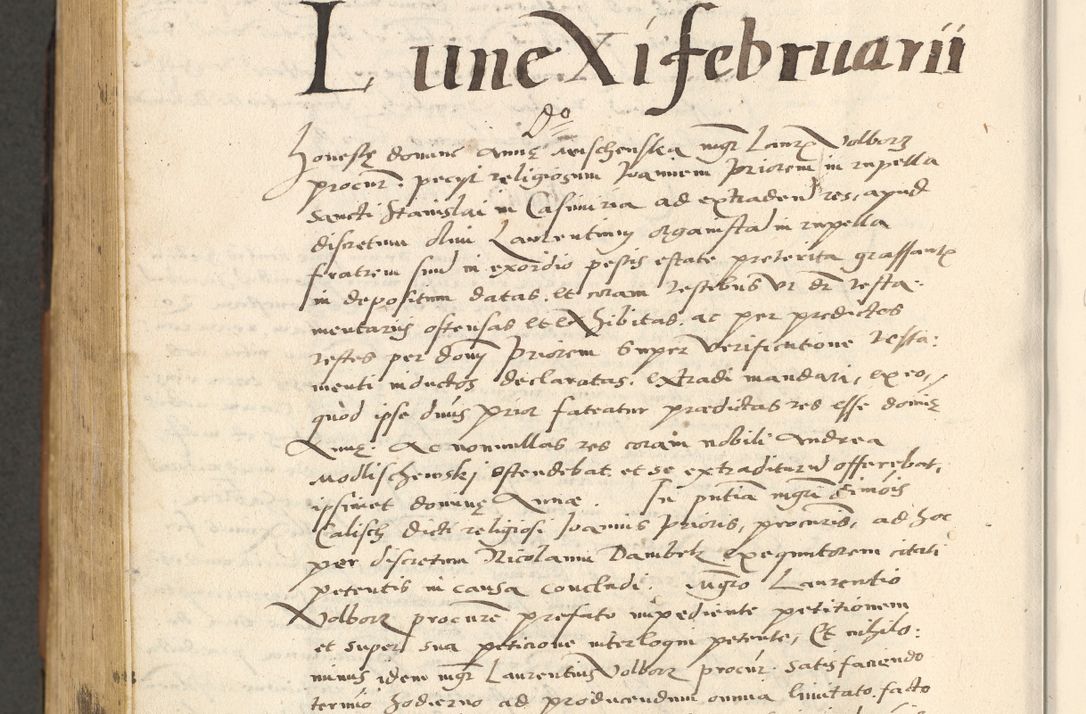 Lune Xi februarii
Do
Honestę domine Annę Mischenska mgr Laurs Volborz
procur. pecyt religiosum Joannem Priorem in rupella
Sancti Stanislai in Casimiria ad extraden res, apud
discretum olim Laurentium organista in rupella
fratrem suu in exordio pestis estate preterita grassants
in depositum datas. et coram testibus ut dr testa-
mentariis ostensas et exhibitas. ac per predictos
testes per dom Priorem super verificatione testa:
menti inductos declaratas. extradi mandari, ex eo,
quòd ipse dnus Prior fateatur prædictas res esse domię
Annę. Ac nonnullas res coram nobili Andrea
Modlischewskj ostendebat et se extraditurū offerebat,
ipsimet dominę Annæ In pntia mgri Simōis
Calisch dicti religiosi Joannis Prioris, procuris, ad hoc
per discretum Nicolaum Dambek exequutorem citati
petentis in causa concludi. Mgro Laurentio
Volborz procure prefato impediente petitionem
et super sua peticione interloqui petente, Et nihilo:
minus idem mgr Laurentius Volborz procur. satisfaciendo
termio hodierno ad producendum omnia limitato, facto